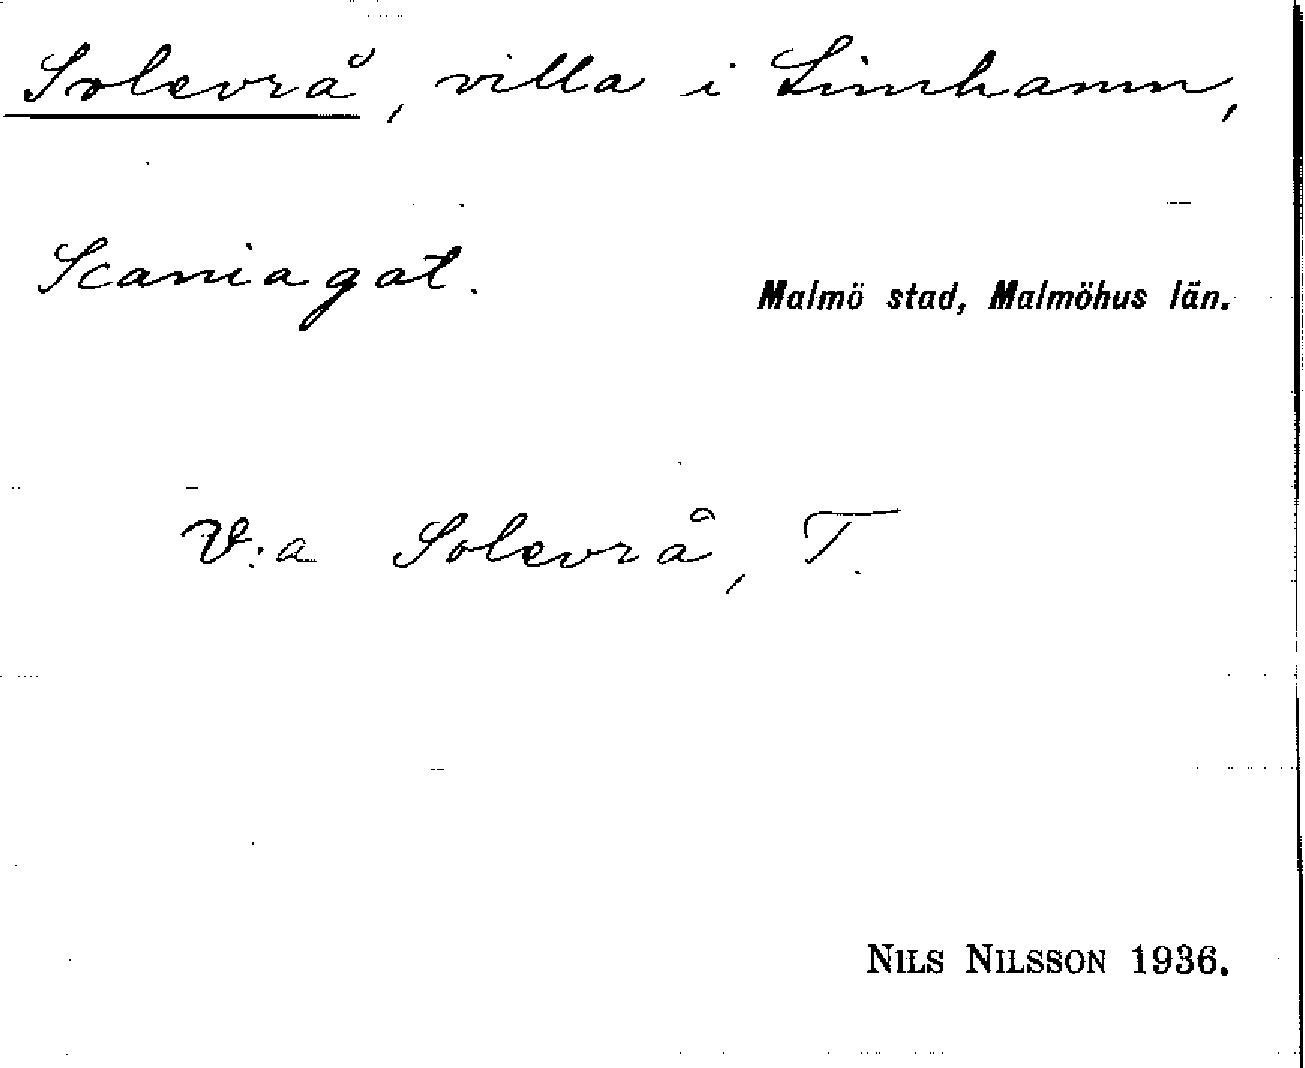 Solevrå, villa i Limhamn,
Scaniagat.
Malmö stad, Malmöhus län.
V:a Solevrå, T.
NILS NILSSON 1936.